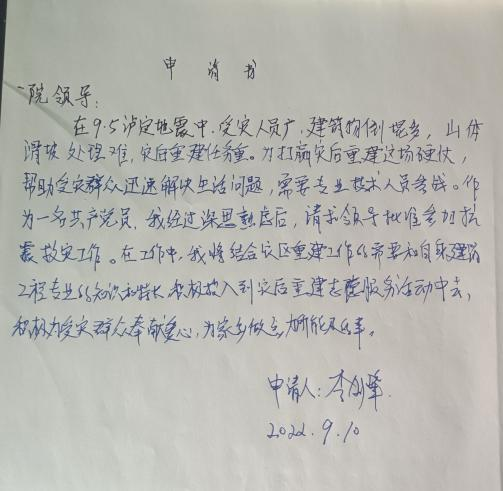 申请书
院领导：
在9.5泸定地震中，受灾人员广，建筑物倒塌多，山体
滑坡处理难，灾后重建任务重。为打赢灾后重建这场硬仗，
帮助受灾群众迅速解决生活问题，需要专业技术人员参战。作
为一名共产党员，我经过深思熟虑后，请求领导批准参加抗
震救灾工作。在工作中，我将结合灾区重建工作的需要和自身建筑
工程专业的知识和特长积极投入到灾后重建志愿服务活动中去，
积极为受灾群众奉献爱心，为家乡做点力所能及的事。
申请人：李剑峰
2022.9.10